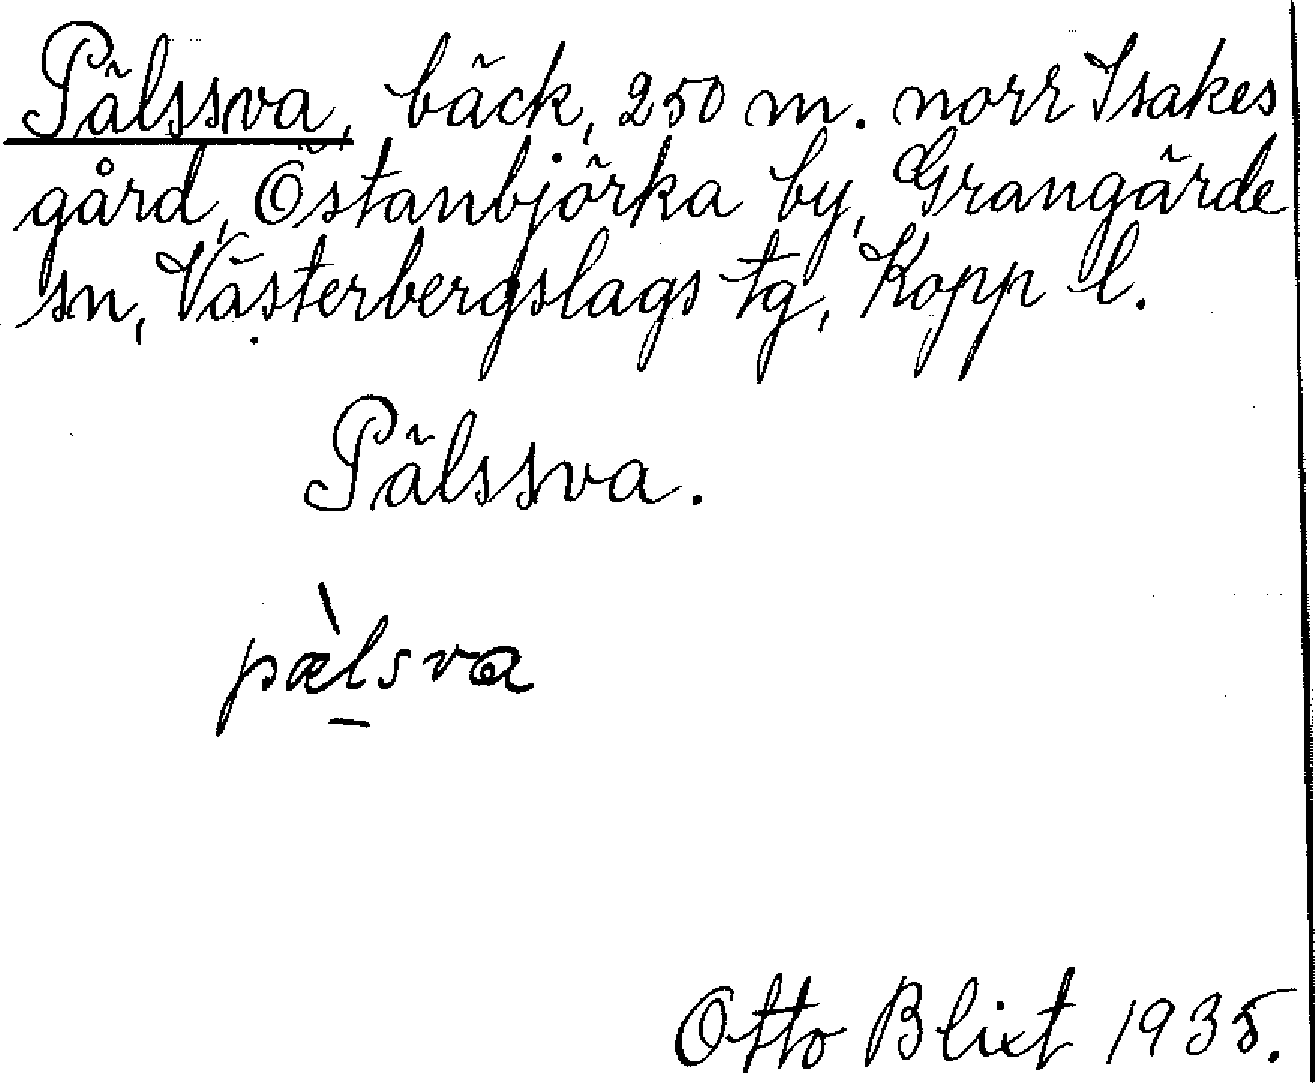 Pälssva, bäck, 250 m. norr Isakes
gård, Östanbjörka by, Grangärde
sn, Västerbergslags tg, Kopp l.
Pälssva.
pæ̀lsva
Otto Blixt 1935.